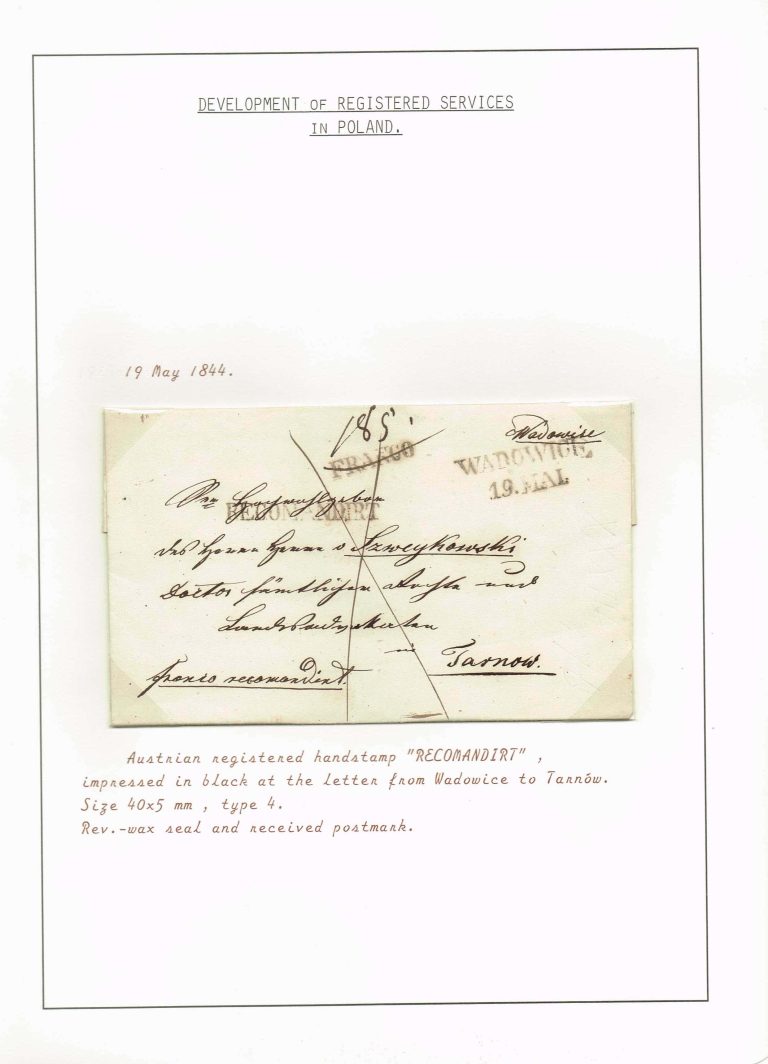 DEVELOPMENT OF REGISTERED SERVICES
IN POLAND.
19 May 1844.
185.
Wadowice
FRANCO
WADOWICE
19. MAI.
RECOMANDIRT
des Herrn Herrn v Szweykowski
Doctor sämtlicher Rechte und
Landesadvokaten
in Tarnow.
franco recomandirt.
Austrian registered handstamp "RECOMANDIRT" ,
impressed in black at the letter from Wadowice to Tarnów.
Size 40x5 mm , type 4.
Rev.-wax seal and received postmark.